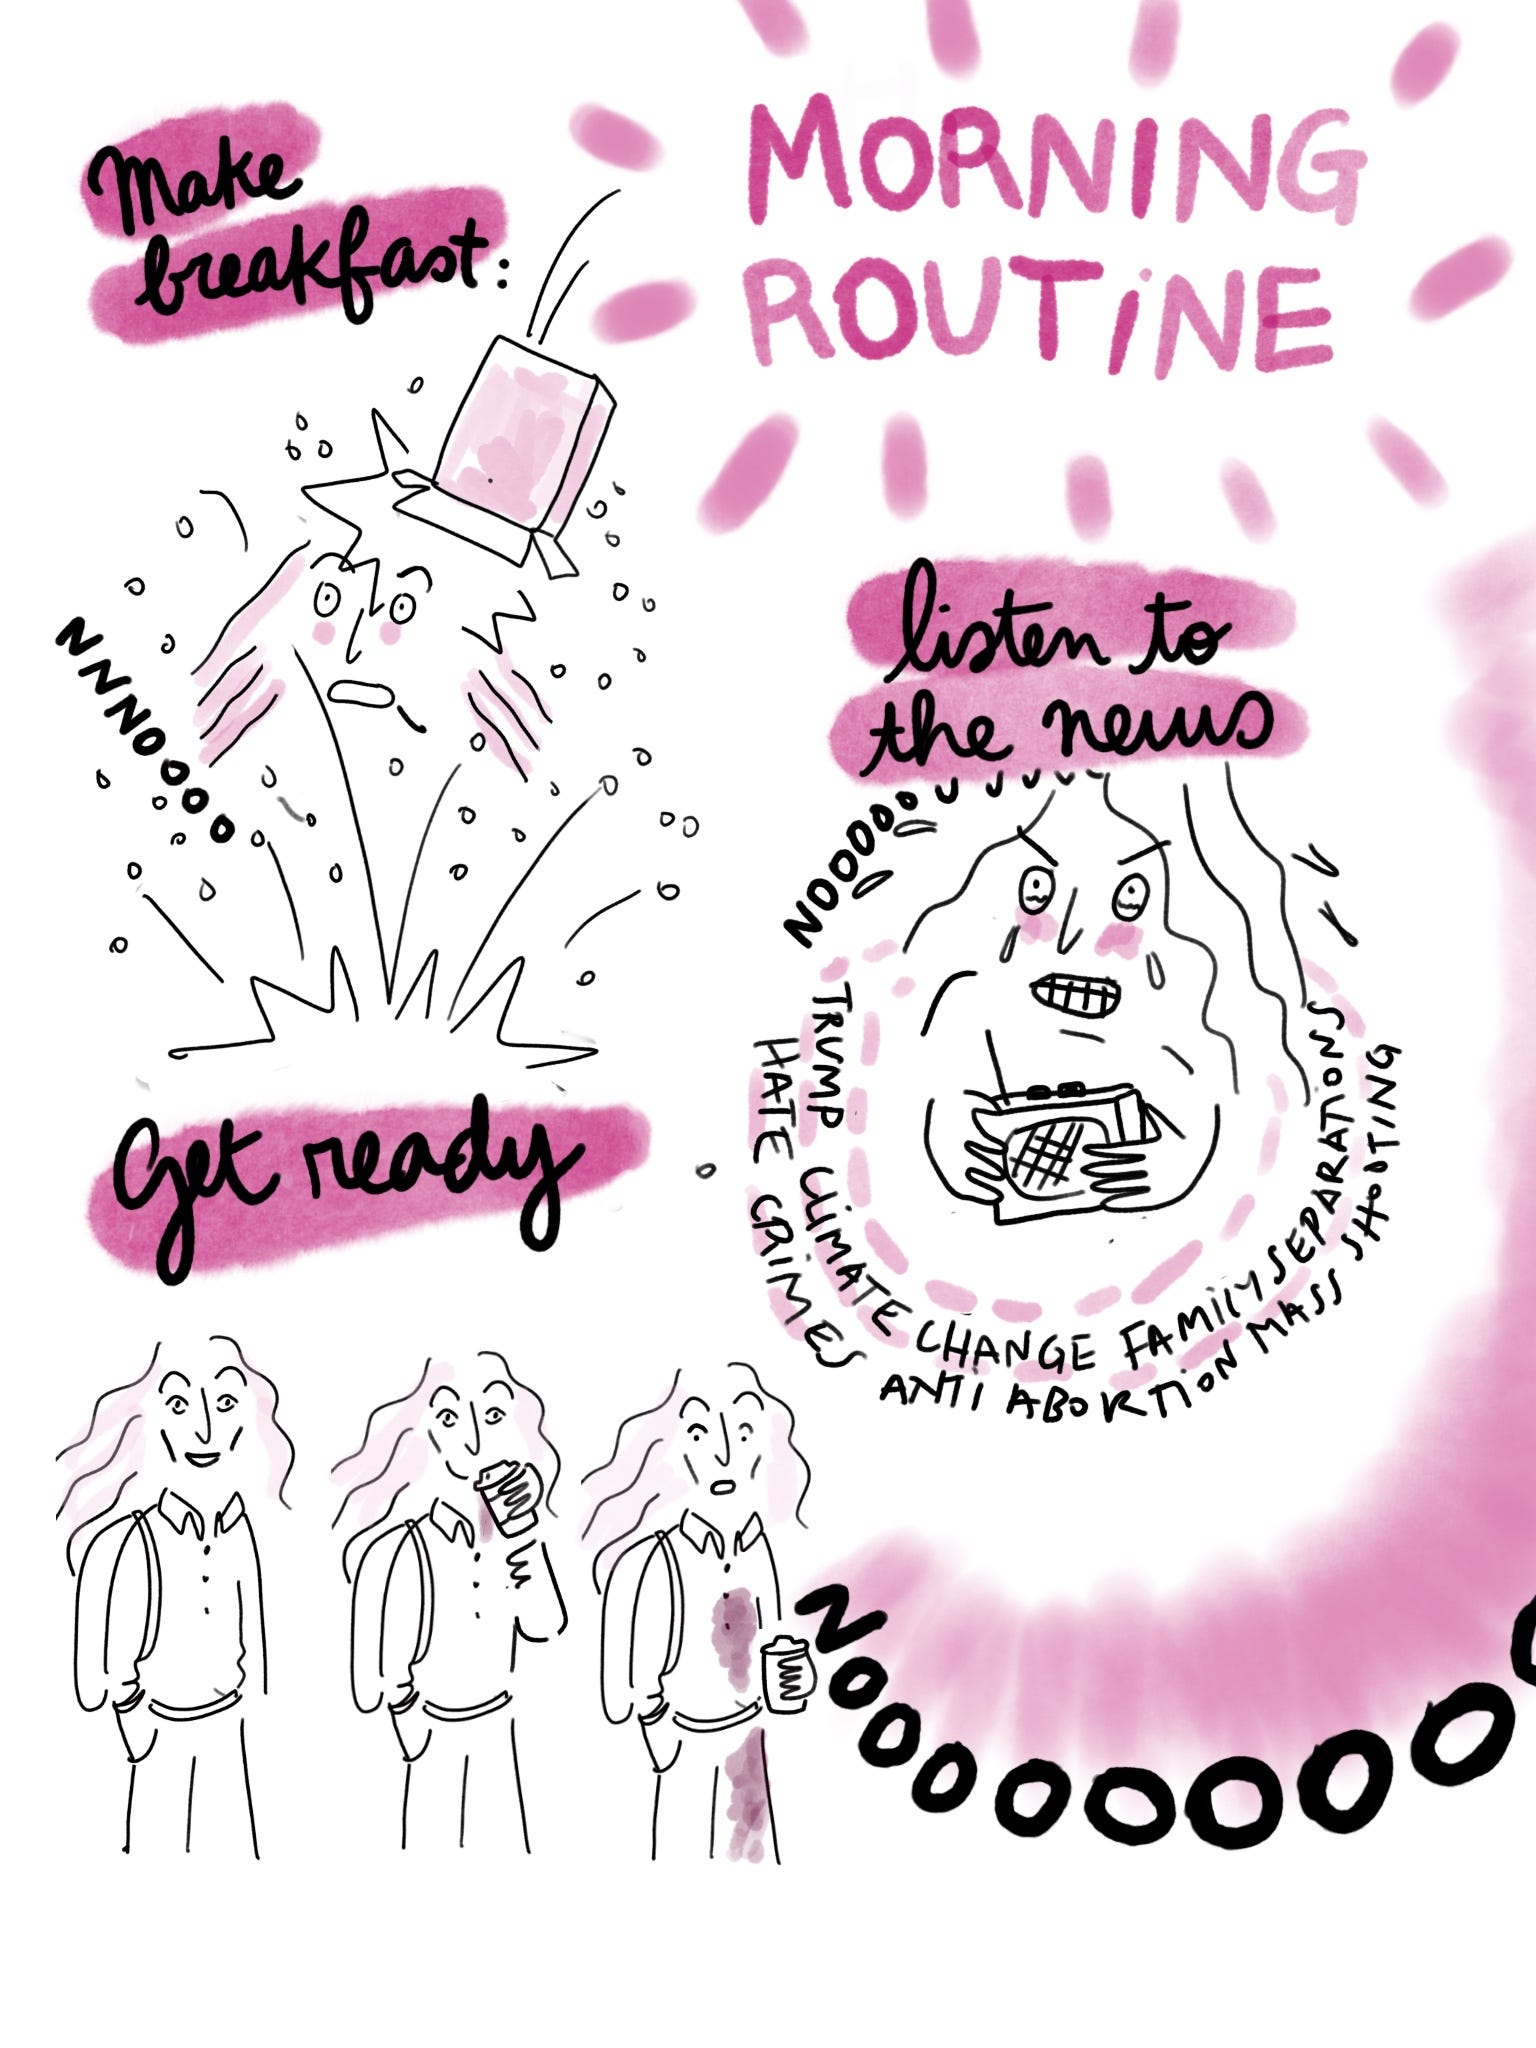 MORNING
ROUTiNE
Make
breakfast:
NNNOOOO
listen to
the news
NOOOOO
TRUMP CLiMATE CHANGE FAMiLY SEPARATiONS
HATE CRiMES ANTi ABORTiON MASS SHOOTING
Get ready
NOOOOOOOOO